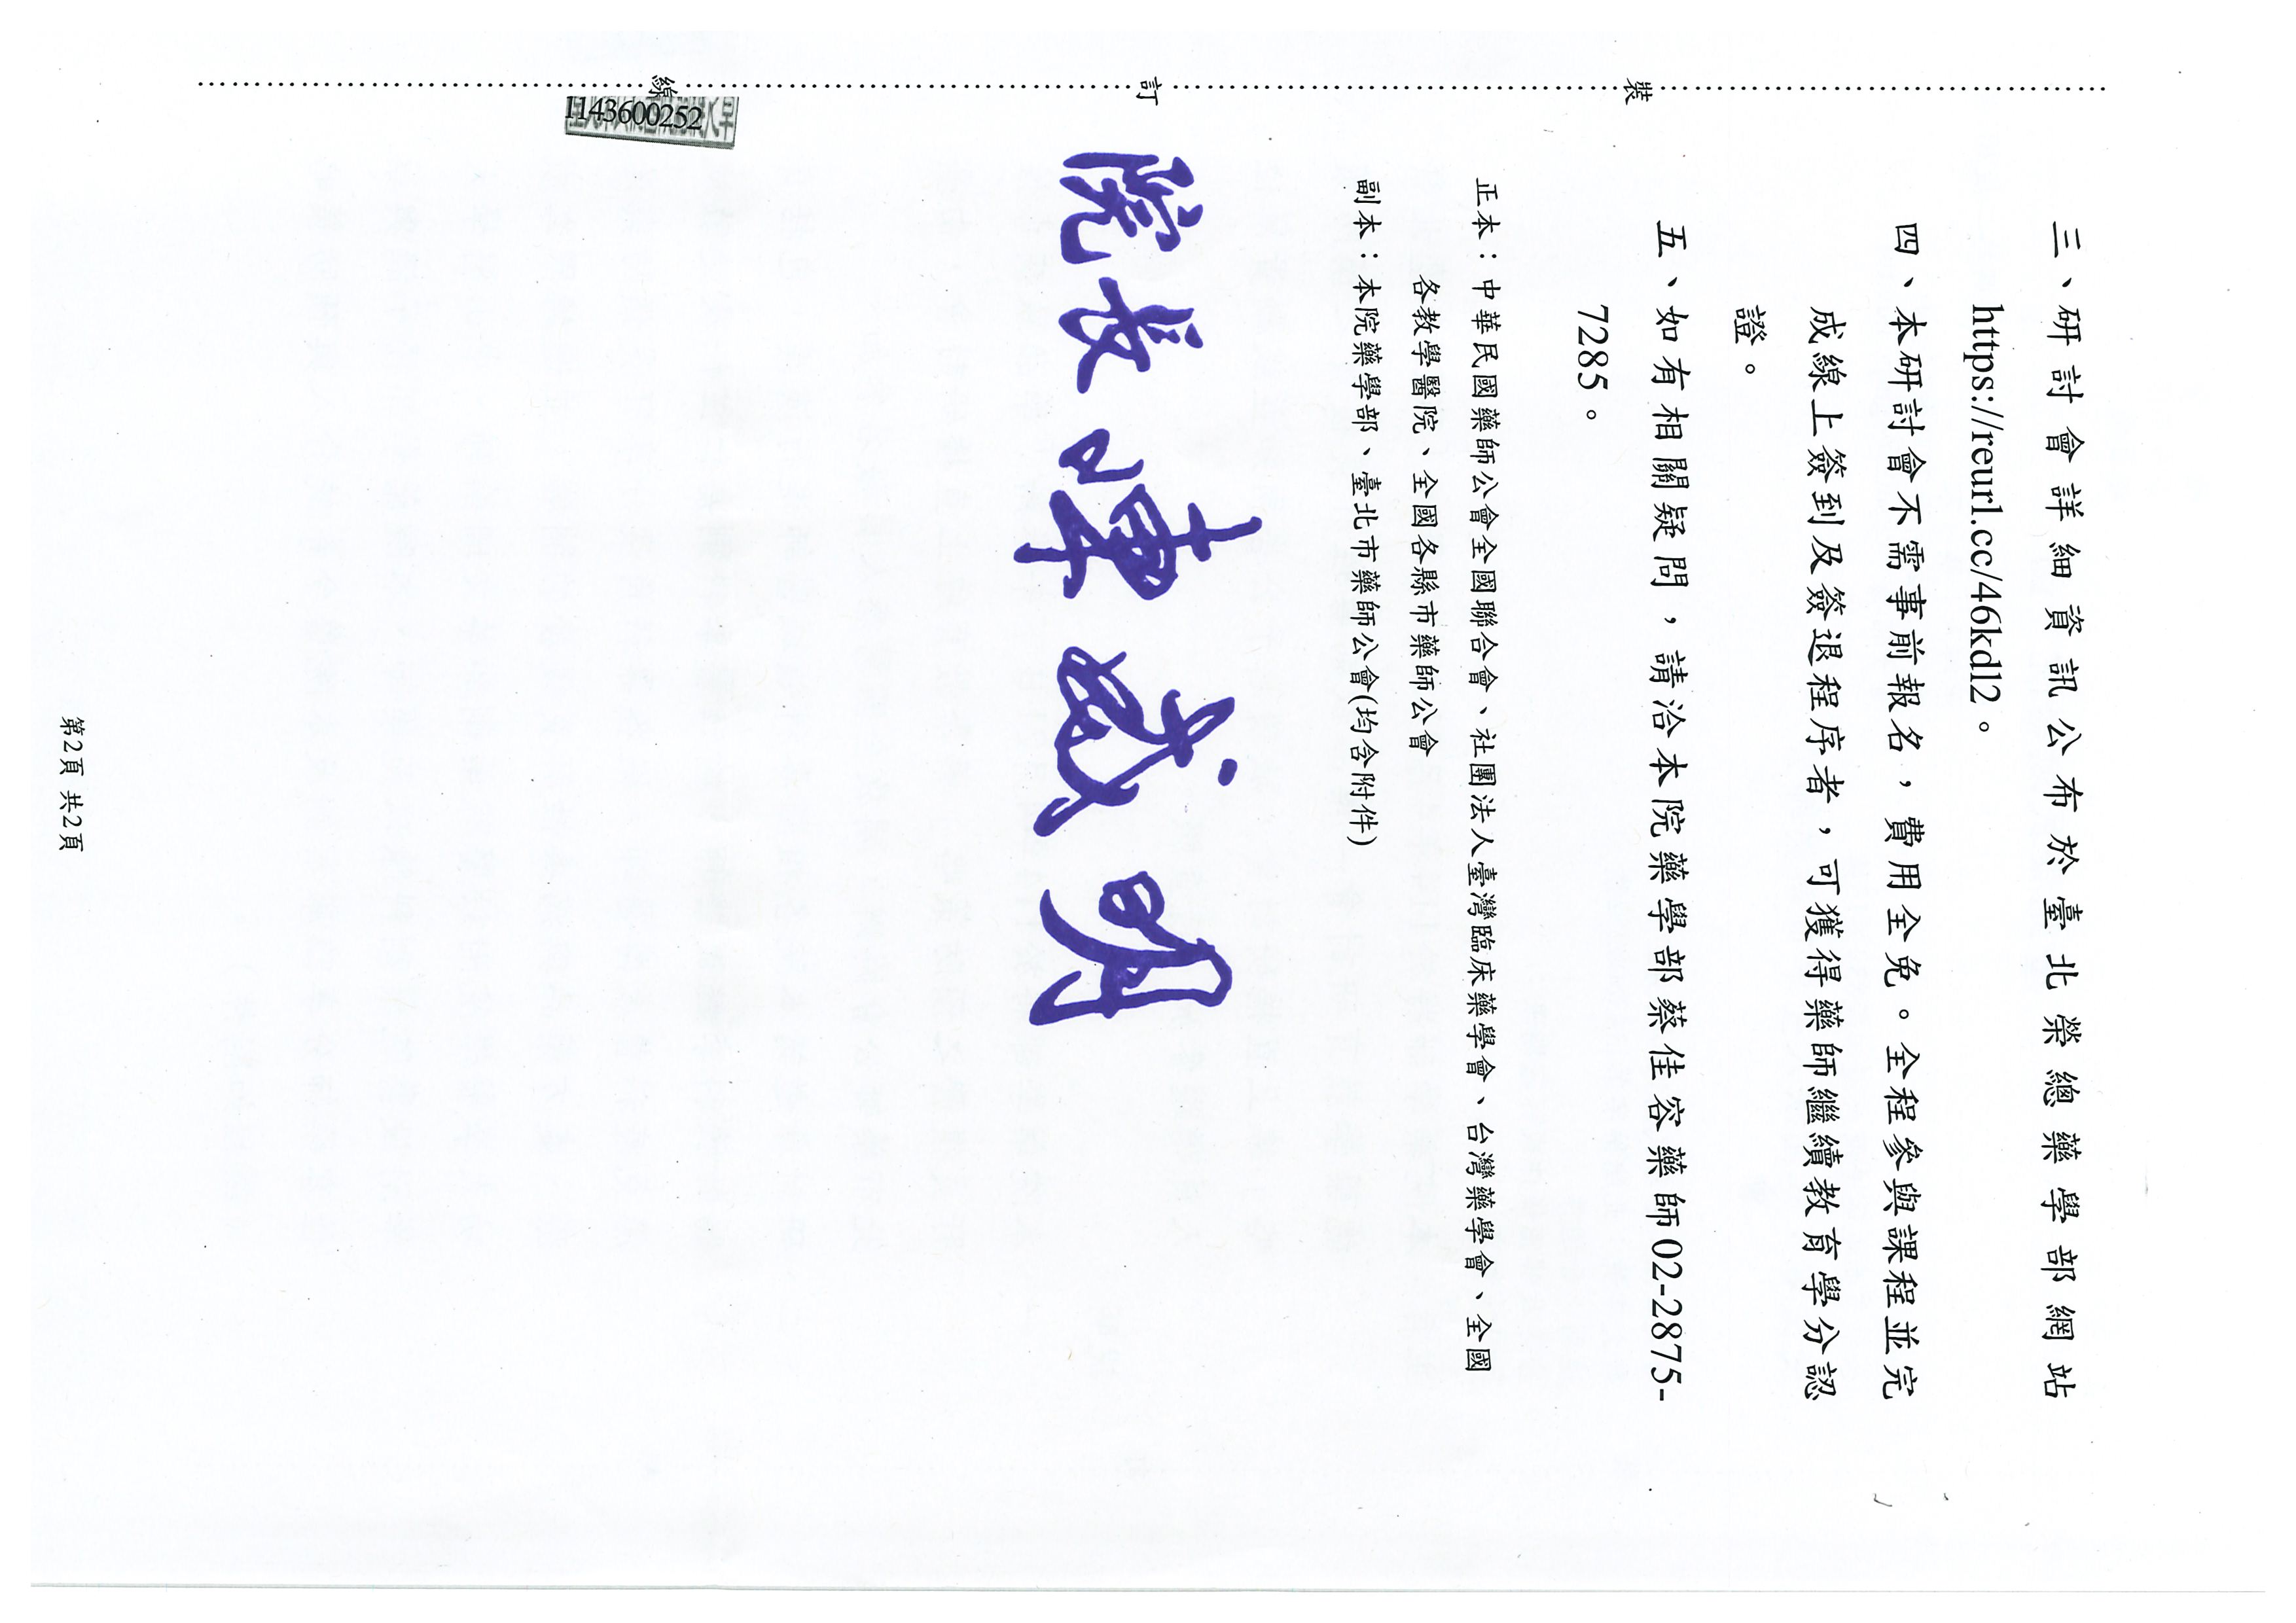 三、研討會詳細資訊公布於臺北榮總藥學部網站
https://reurl.cc/46kdl2。
四、本研討會不需事前報名，費用全免。全程參與課程並完
成線上簽到及簽退程序者，可獲得藥師繼續教育學分認
證。
五、如有相關疑問，請洽本院藥學部蔡佳容藥師02-2875-
7285。
正本：中華民國藥師公會全國聯合會、社團法人臺灣臨床藥學會、台灣藥學會、全國
各教學醫院、全國各縣市藥師公會
副本：本院藥學部、臺北市藥師公會(均含附件)
院長陳威明
裝
訂
線
1143600252
第2頁 共2頁